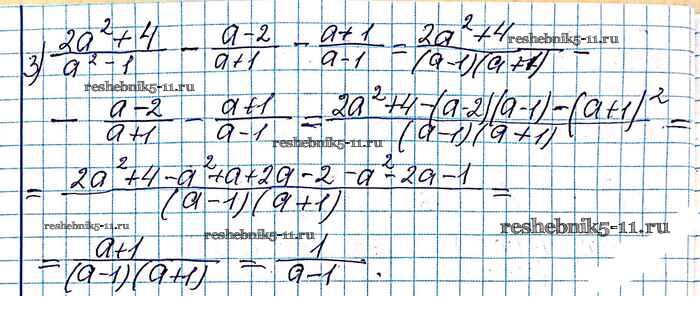 3) (2a²+4)/(a²-1) - (a-2)/(a+1) - (a+1)/(a-1) = (2a²+4)/((a-1)(a+1)) -
reshebnik5-11.ru
reshebnik5-11.ru
- (a-2)/(a+1) - (a+1)/(a-1) = (2a²+4-(a-2)(a-1)-(a+1)²)/((a-1)(a+1)) =
reshebnik5-11.ru
= (2a²+4-a²+a+2a-2-a²-2a-1)/((a-1)(a+1)) =
reshebnik5-11.ru
reshebnik5-11.ru
reshebnik5-11.ru
= (a+1)/((a-1)(a+1)) = 1/(a-1).
reshebnik5-11.ru